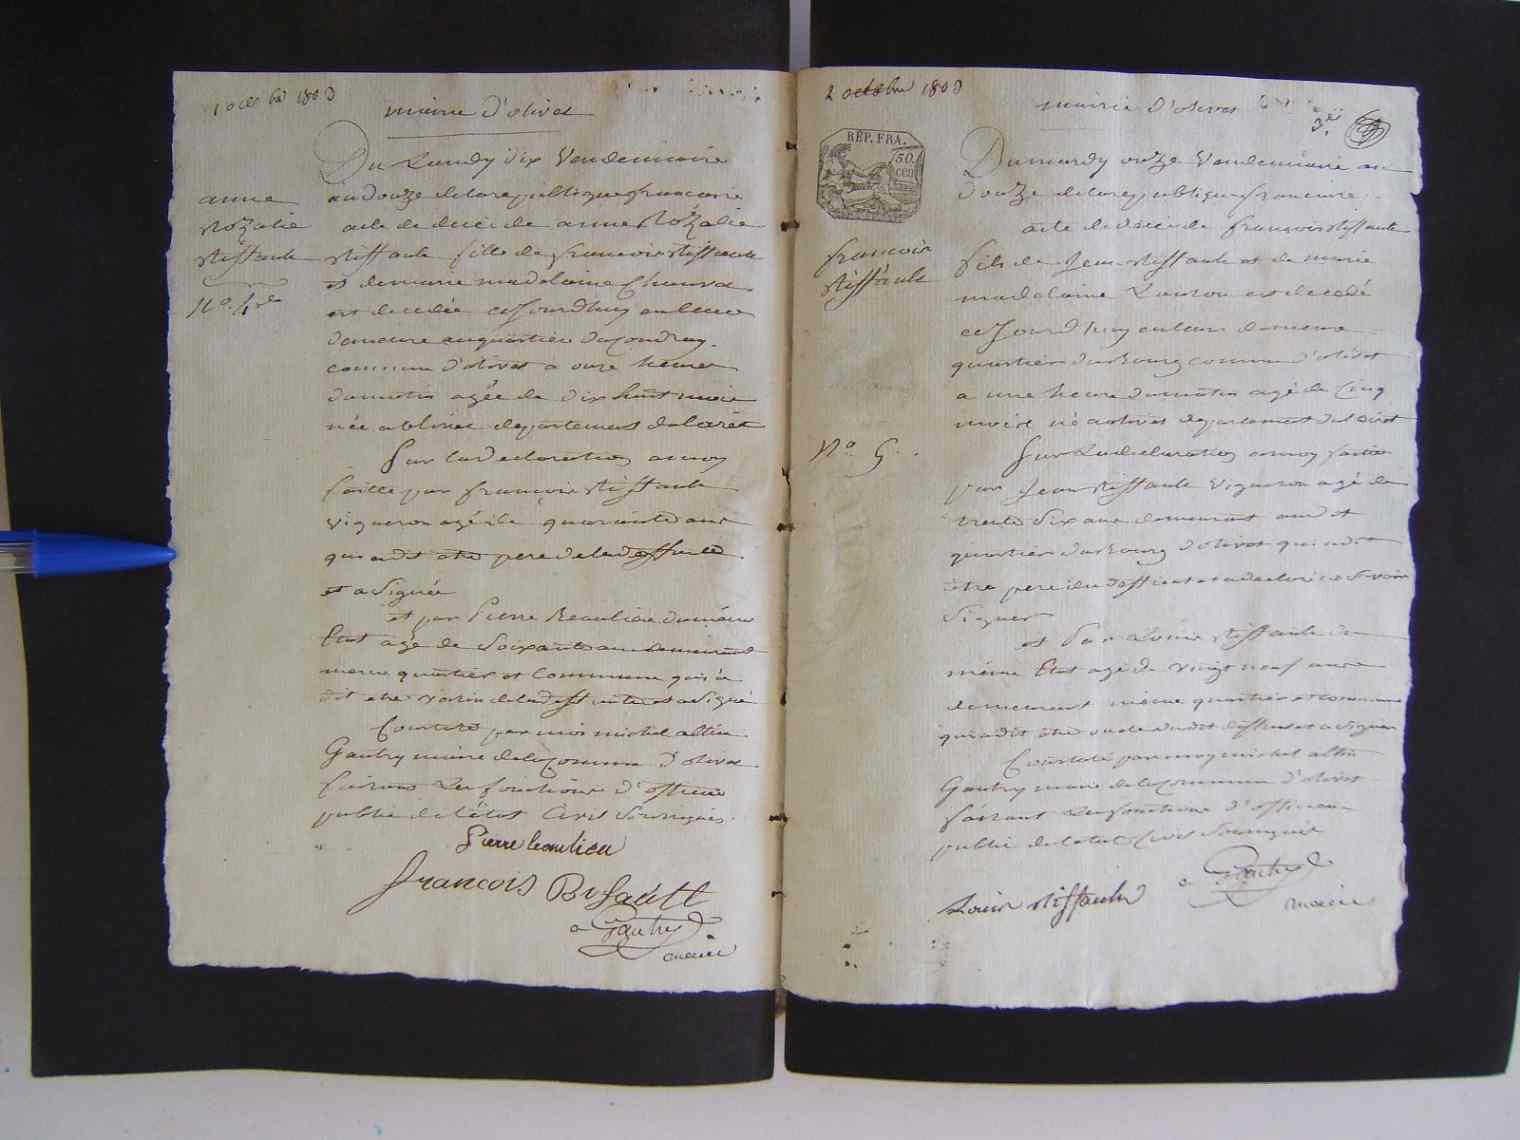 1 octobre 1803
mairie d'olivet
Du Lundy dix Vendemiaire
an douze de la republique francaise
anne
Rozalie
Stiffault
N.o 4
acte de deces de anne Rozalie
Stiffault fille de francois Stiffault
et de marie madelaine Chauvet
est decedée cejourdhuy en leur
demeure au quartier du Coudray
commune d'olivet a onze heures
du matin agée de dix huit mois
née a olivet departement du loiret
Sur la declaration a moy
faitte par francois Stiffault
vigneron agé de quarante ans
qui a dit etre pere de la deffunte
et a Signée
et par Pierre Beaulieu du même
Etat agé de Soixante ans demeurant
meme quartier et Commune qui a
dit etre voisin de la deffunte et a Signé
Constaté par moi michel altin
Gautry maire de la Commune d'olivet
faisant les fonctions d'officier
public de l'état Civil Soussigné
Pierre beaulieu
francois
Gautry
maire
2 octobre 1803
mairie d'olivet
3
RÉP. FRA.
50
cen
francois
Stiffault
N.o 5.
Du mardy onze Vendemiaire an
douze de la republique francaise
acte de deces de francois Stiffault
fils de Jean Stiffault et de marie
madelaine est decedé
cejourdhuy en leur demeure
quartier du Bourg commune d'olivet
a une heure du matin agé de Cinq
mois né a olivet departement du Loiret
Sur La declaration a moy faitte
par Jean Stiffault Vigneron agé de
trente Six ans demeurant audit
quartier du Bourg d'olivet qui a dit
être pere du deffunt et a declaré ne Savoir
Signer
et Par Louis Stiffault du
même Etat agé de vingt neuf ans
demeurant même quartier et commune
qui a dit etre oncle dudit deffunt et a Signer
Constaté par moy michel altin
Gautry maire de la Commune d'olivet
faisant Les fonctions d'officier
public de l'etat Civil Soussigné
Louis Stiffault
Gautry
maire